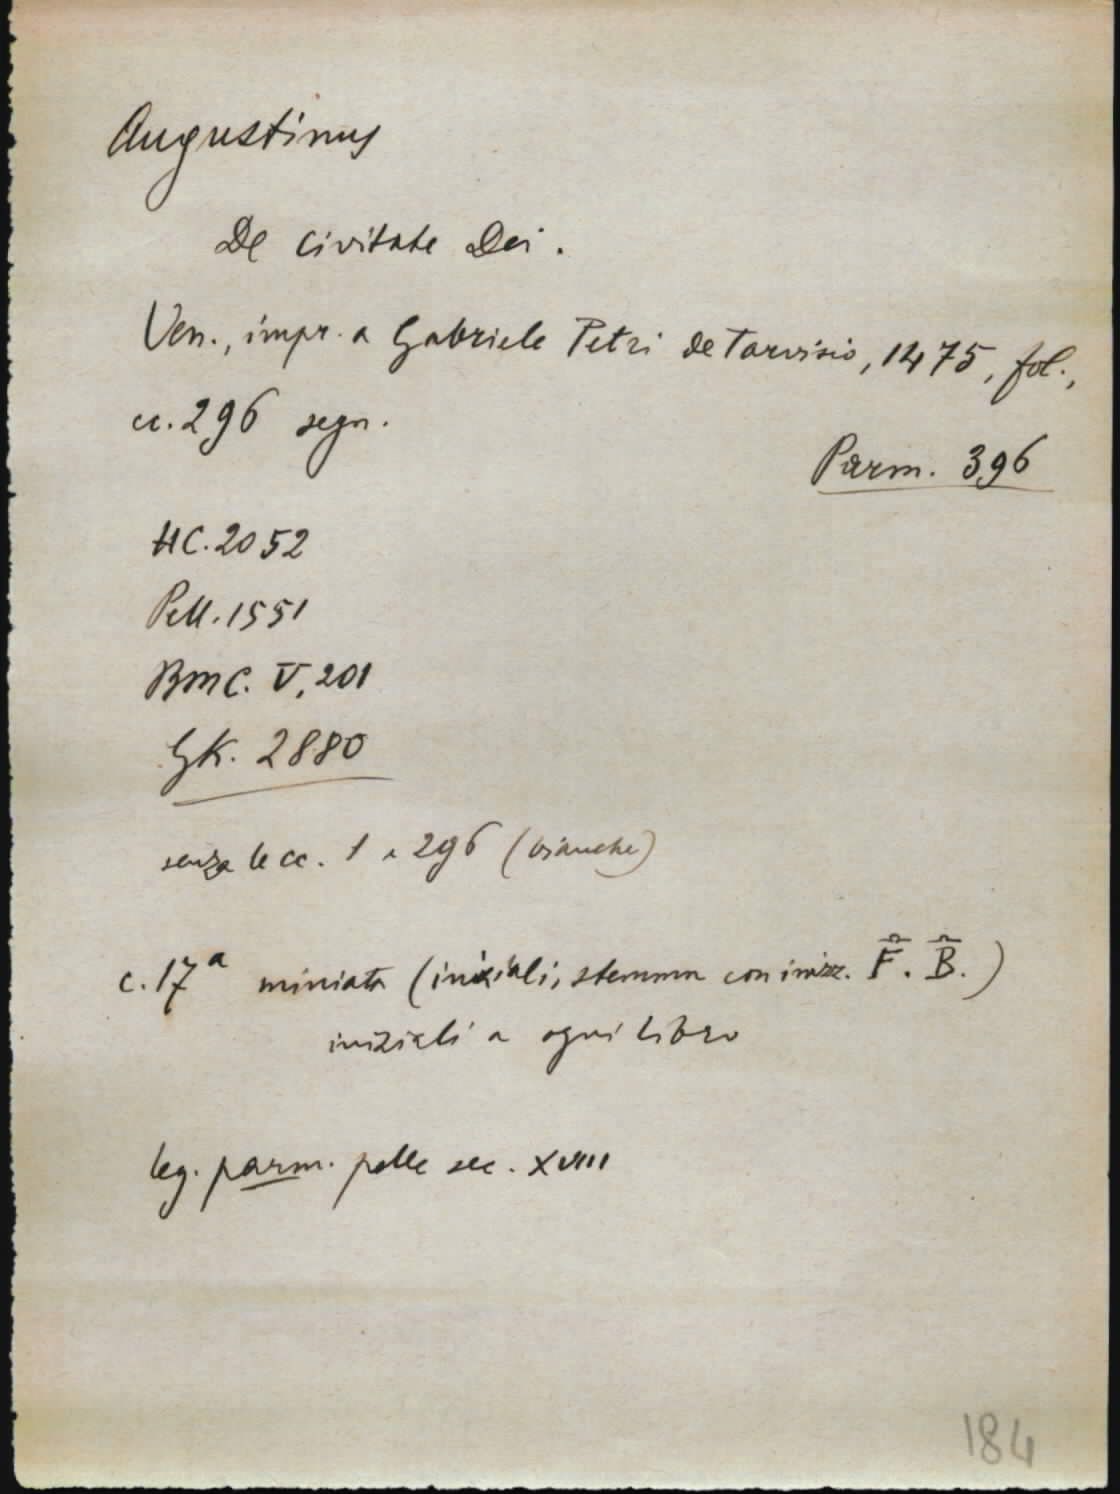 Augustinus
De civitate Dei.
Ven., impr. a Gabriele Petri de Tarvisio, 1475, fol.,
cc. 296 segn.
Parm. 396
HC. 2052
Pell. 1551
BMC. V, 201
GK. 2880
senza le cc. 1 e 296 (bianche)
c. 17a miniata (iniziali, stemma con inizz. F. B.)
iniziali a ogni libro
leg. parm. pelle sec. XVIII
184